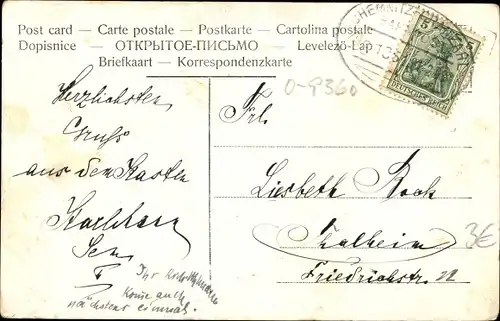 Post card – Carte postale – Postkarte – Cartolina postale
Dopisnice – ОТКРЫТОЕ-ПИСЬМО – Levelező-Lap
Briefkaart – Korrespondenzkarte
0-9360
5 5
DEUTSCHES REICH
Herzlichsten
Gruß
aus dem Kasten
Sen
Ihr
Komme auch
nächstens einmal.
Frl.
Liesbeth Bock
Thalheim
Friedrichstr.
3€